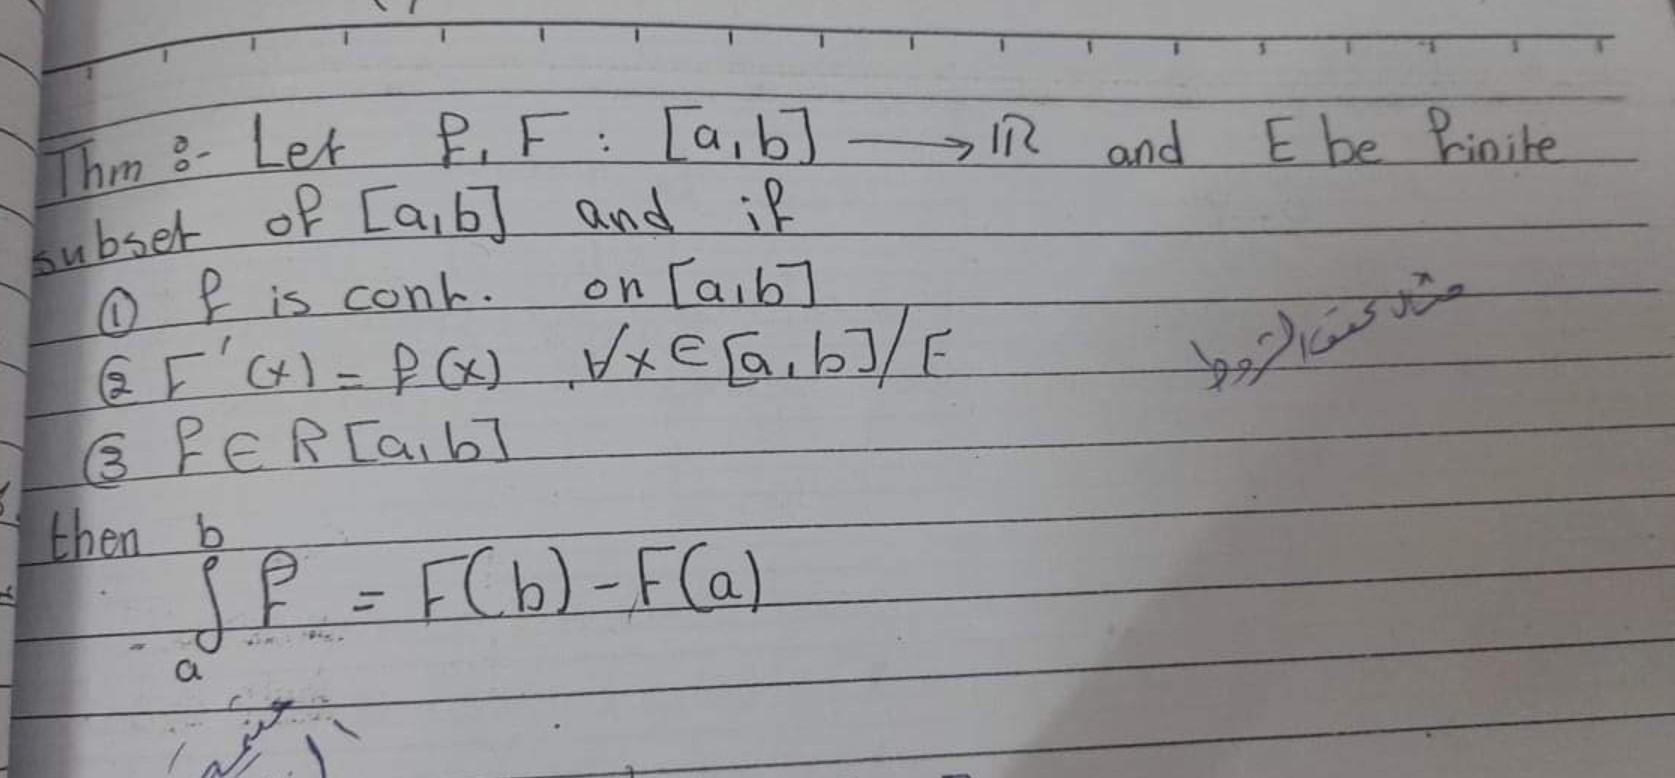 Thm :- Let f, F : [a,b] → IR and E be finite
subset of [a,b] and if
① f is cont. on [a,b]
② F'(x) = f(x) , ∀x ∈ [a,b]/E
③ f ∈ R[a,b]
then
b
∫ f = F(b) - F(a)
a